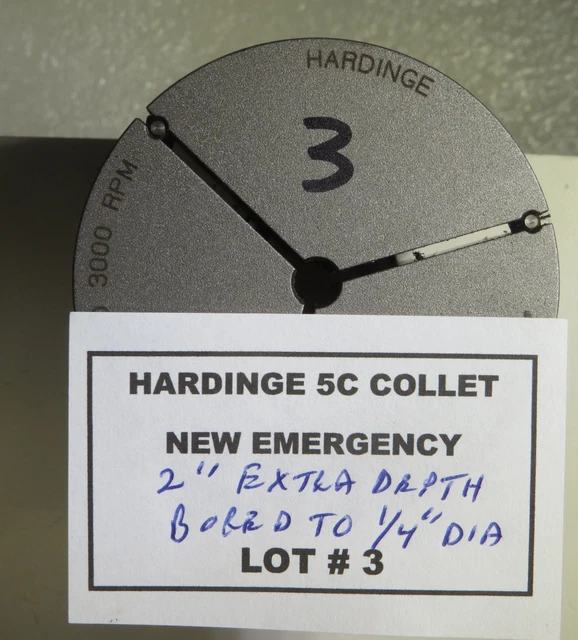 HARDINGE
3
3000 RPM
HARDINGE 5C COLLET
NEW EMERGENCY
2" EXTRA DEPTH
BORED TO 1/4" DIA
LOT # 3